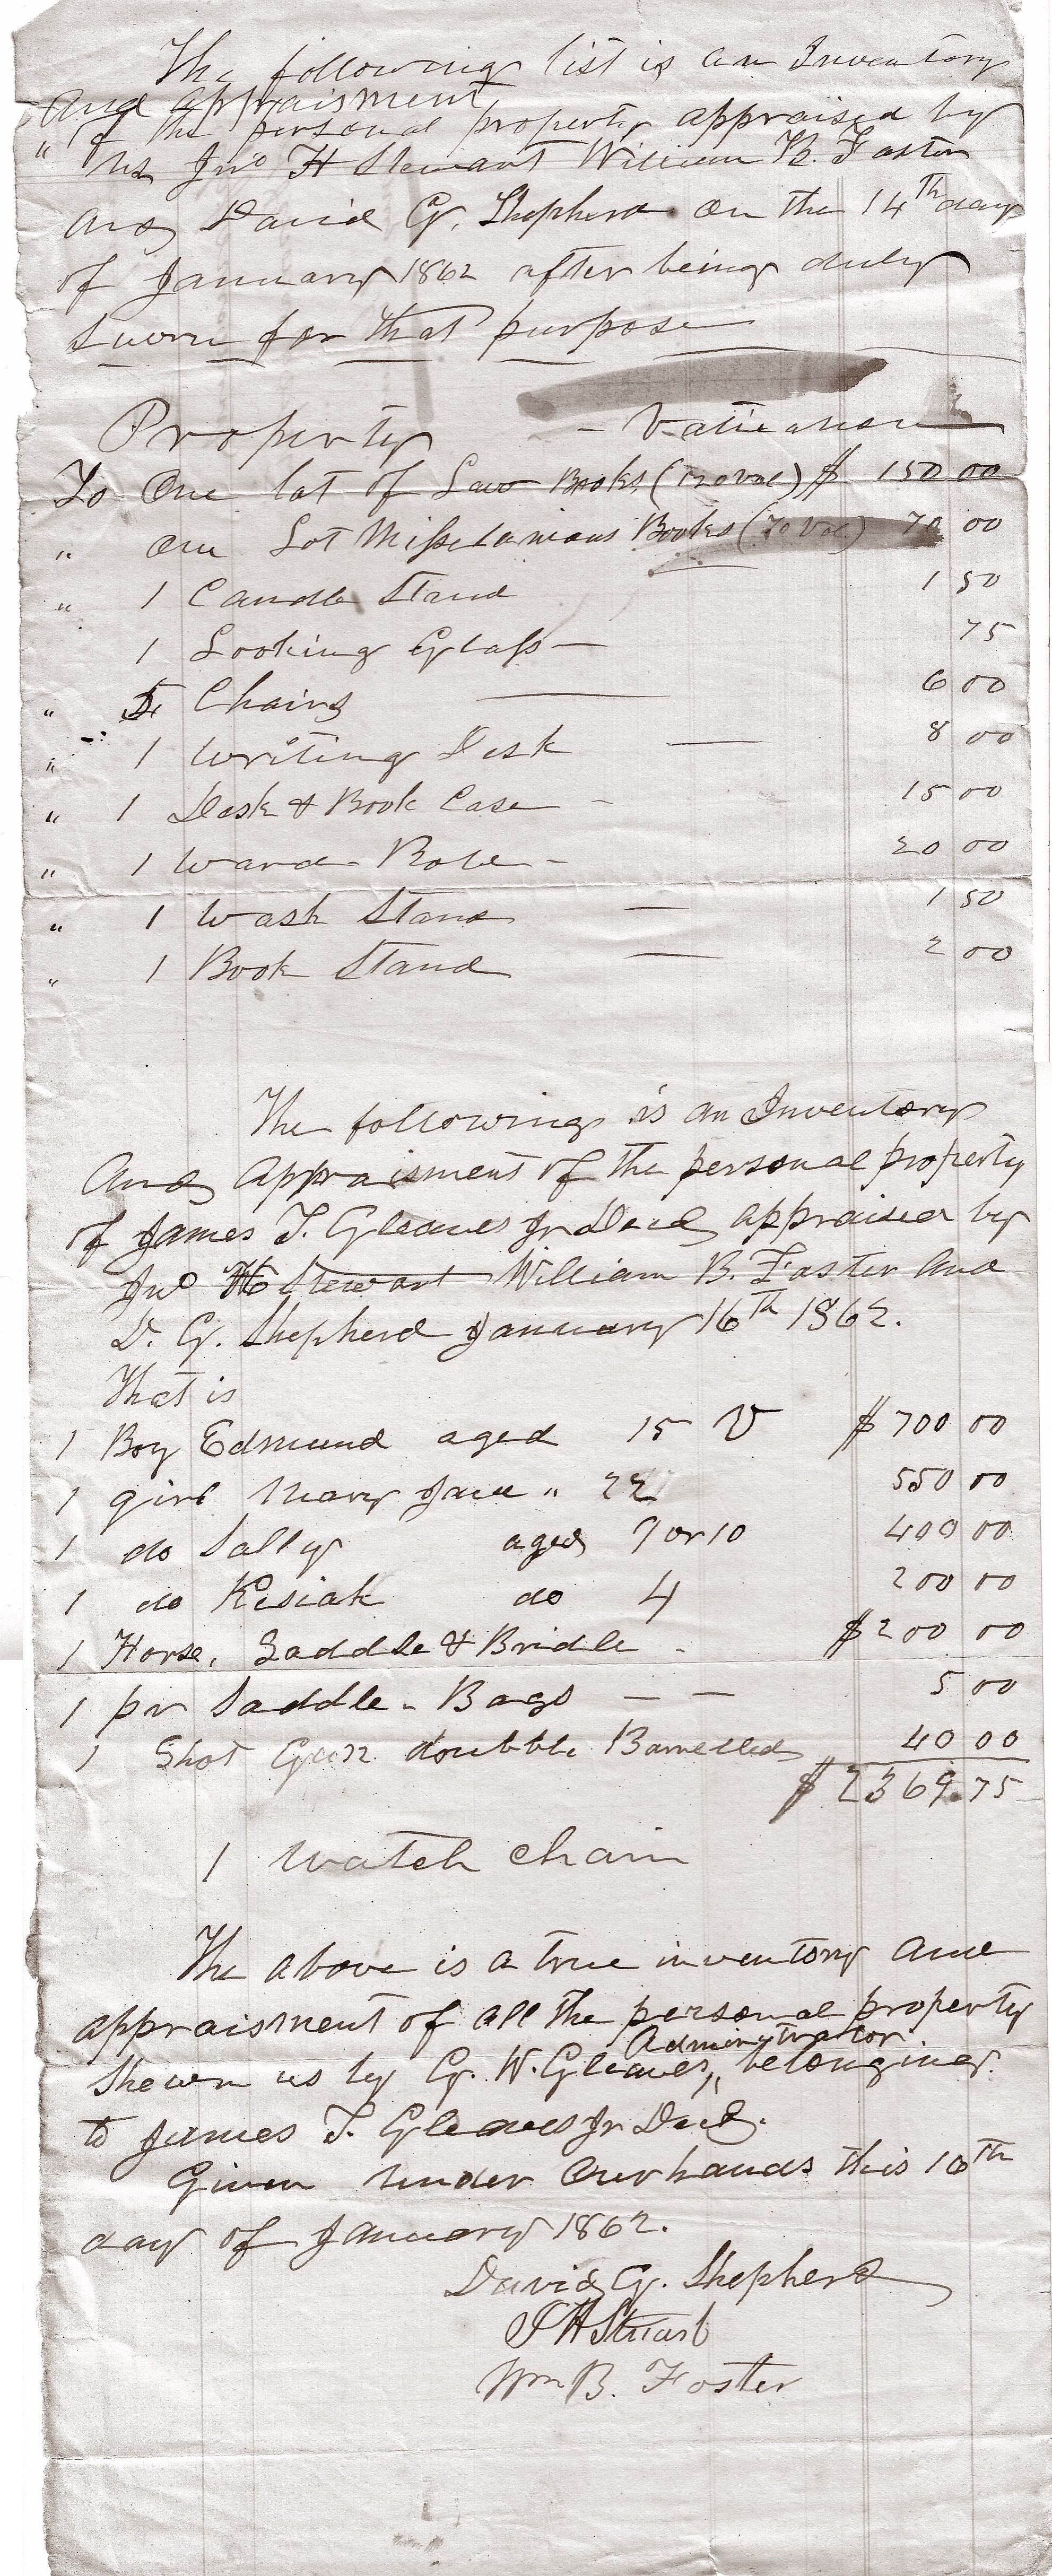 The following list is an Inventory
and appraisment
" of the personal property appraised by
us Jno H Stewart William B. Foster
and David G. Shepherd on the 14th day
of January 1862 after being duly
sworn for that purpose
Property - Valuation
To One lot of Law Books (120 vol) $ 150 00
" One Lot Misselanious Books (70 Vol) 70 00
" 1 Candle Stand 1 50
1 Looking Glass — 75
" 5 Chairs — 6 00
" 1 Writing Desk — 8 00
" 1 Desk & Book Case - 15 00
" 1 Ward-Robe - 20 00
" 1 Wash Stand — 1 50
" 1 Book Stand — 2 00
The following is an Inventory
And Appraisment of the personal property
of James T. Gleaves Jr Decd appraised by
Jno H Stewart William B. Foster and
D. G. Shepherd January 16th 1862.
That is
1 Boy Edmund aged 15 V $ 700 00
1 girl Mary Jane " 22 550 00
1 do Sally aged 9 or 10 400 00
1 do Kesiah do 4 200 00
1 Horse, Saddle & Bridle - $ 200 00
1 pr Saddle-Bags — — 5 00
1 Shot Gun doubble Barrelled 40 00
$ 2369.75
1 Watch chain
The above is a true inventory and
appraisment of all the personal property
Administrator
shewn us by G. W. Gleaves, " belonging
to James T. Gleaves Jr Decd.
Given under Our hands this 16th
day of January 1862.
David G. Shepherd
J H Stuart
Wm B. Foster